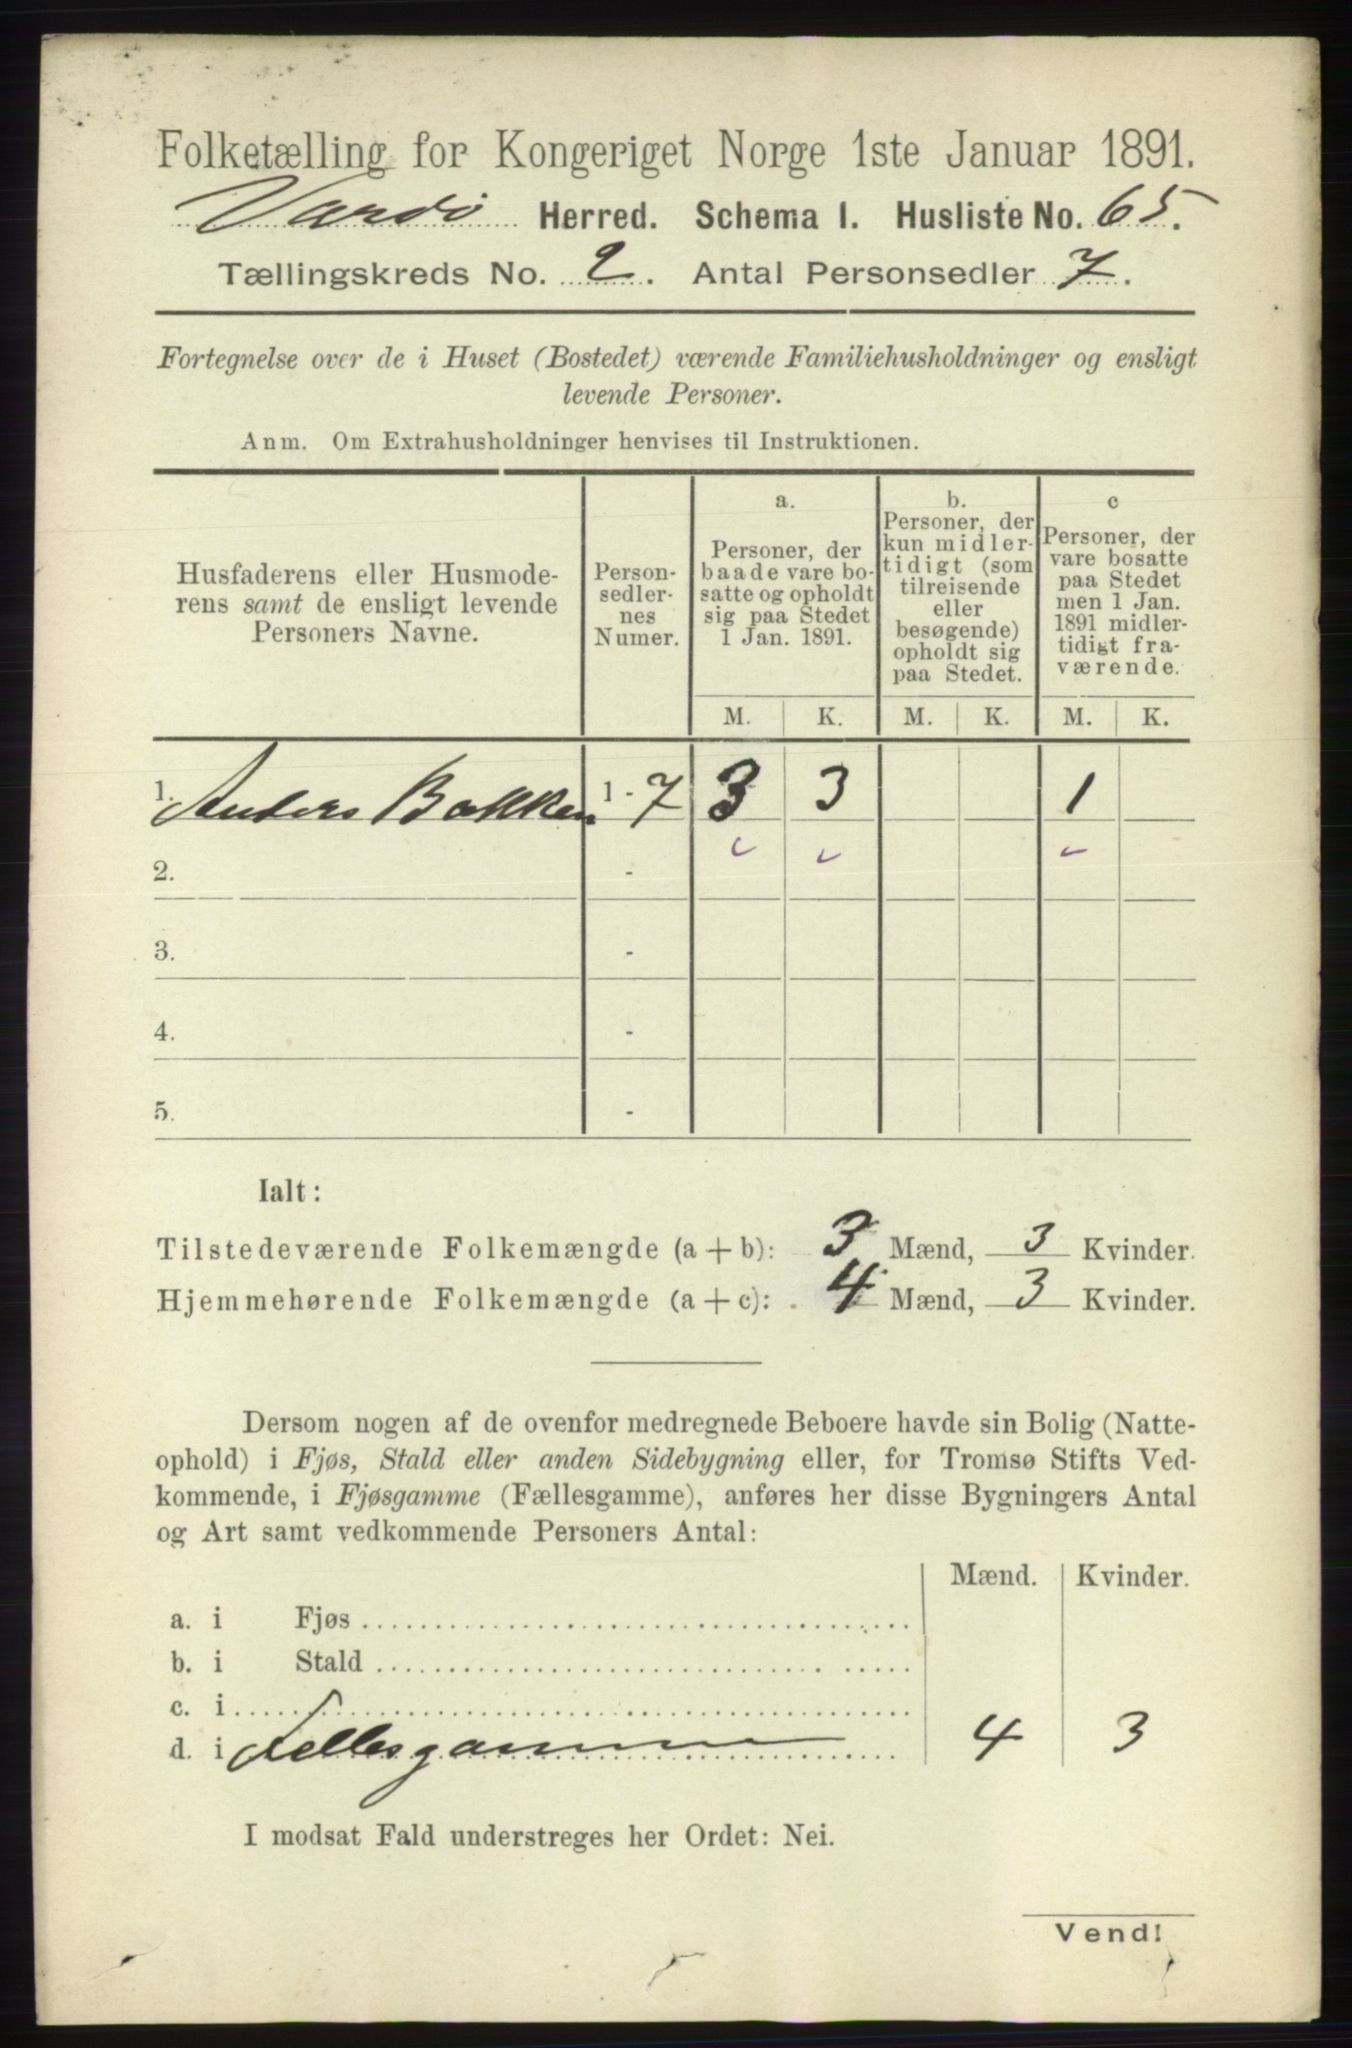 Folketælling for Kongeriget Norge 1ste Januar 1891.
Vardö Herred. Schema I. Husliste No. 65.
Tællingskreds No. 2. Antal Personsedler 7.
Fortegnelse over de i Huset (Bostedet) værende Familiehusholdninger og ensligt
levende Personer.
Anm. Om Extrahusholdninger henvises til Instruktionen.
Husfaderens eller Husmode-
rens samt de ensligt levende
Personers Navne.
Person-
sedler-
nes
Numer.
a.
Personer, der
baade vare bo-
satte og opholdt
sig paa Stedet
1 Jan. 1891.
b.
Personer, der
kun midler-
tidigt (som
tilreisende
eller
besøgende)
opholdt sig
paa Stedet.
c
Personer, der
vare bosatte
paa Stedet
men 1 Jan.
1891 midler-
tidigt fra-
værende.
M. K. M. K. M. K.
1. Anders Bakken 1 - 7 3 3 1
2. -
3. -
4. -
5. -
Ialt:
Tilstedeværende Folkemængde (a + b): 3 Mænd, 3 Kvinder.
Hjemmehørende Folkemængde (a + c): 4 Mænd, 3 Kvinder.
Dersom nogen af de ovenfor medregnede Beboere havde sin Bolig (Natte-
ophold) i Fjøs, Stald eller anden Sidebygning eller, for Tromsø Stifts Ved-
kommende, i Fjøsgamme (Fællesgamme), anføres her disse Bygningers Antal
og Art samt vedkommende Personers Antal:
Mænd. Kvinder.
a. i Fjøs
b. i Stald
c. i
d. i Fellesgamme 4 3
I modsat Fald understreges her Ordet: Nei.
Vend!